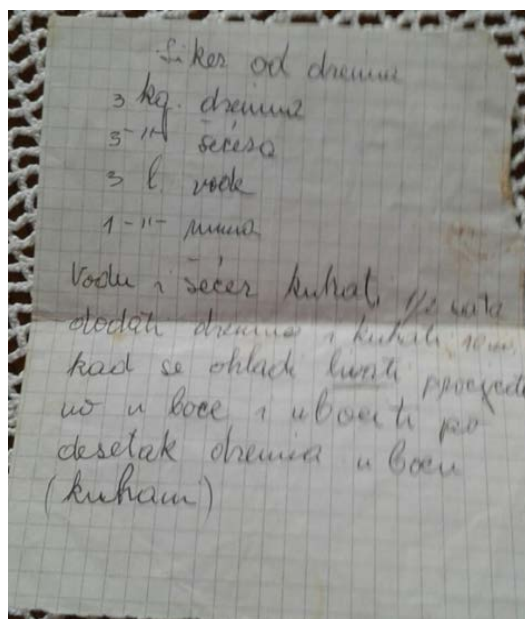 Liker od drenina
3 kg. drenina
3 -"- šećera
3 l. vode
1 -"- ruma
Vodu i šećer kuhati 1/2 sata
dodati drenine i kuhati 10 m
kad se ohladi
u boce i ubaciti po
desetak drenina u bocu
(kuhani)